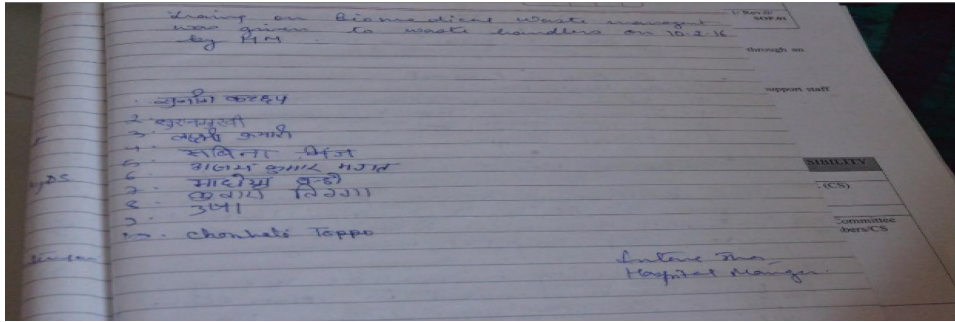 Traing on Biomedical Waste managent
was given to waste handlers on 10.2.16
by HM.
1. सुनीता कश्यप
2. सुरजमुखी
3. लक्ष्मी कुमारी
4. सबिना मिंज
5. अजय कुमार भगत
6.
7. तिग्गा
8. उषा
9.
10. Toppo
Hospital Manger.
1/Rev.0/
SOP.01
through an
support staff
SIBILITY
(CS)
Committee
bers/CS